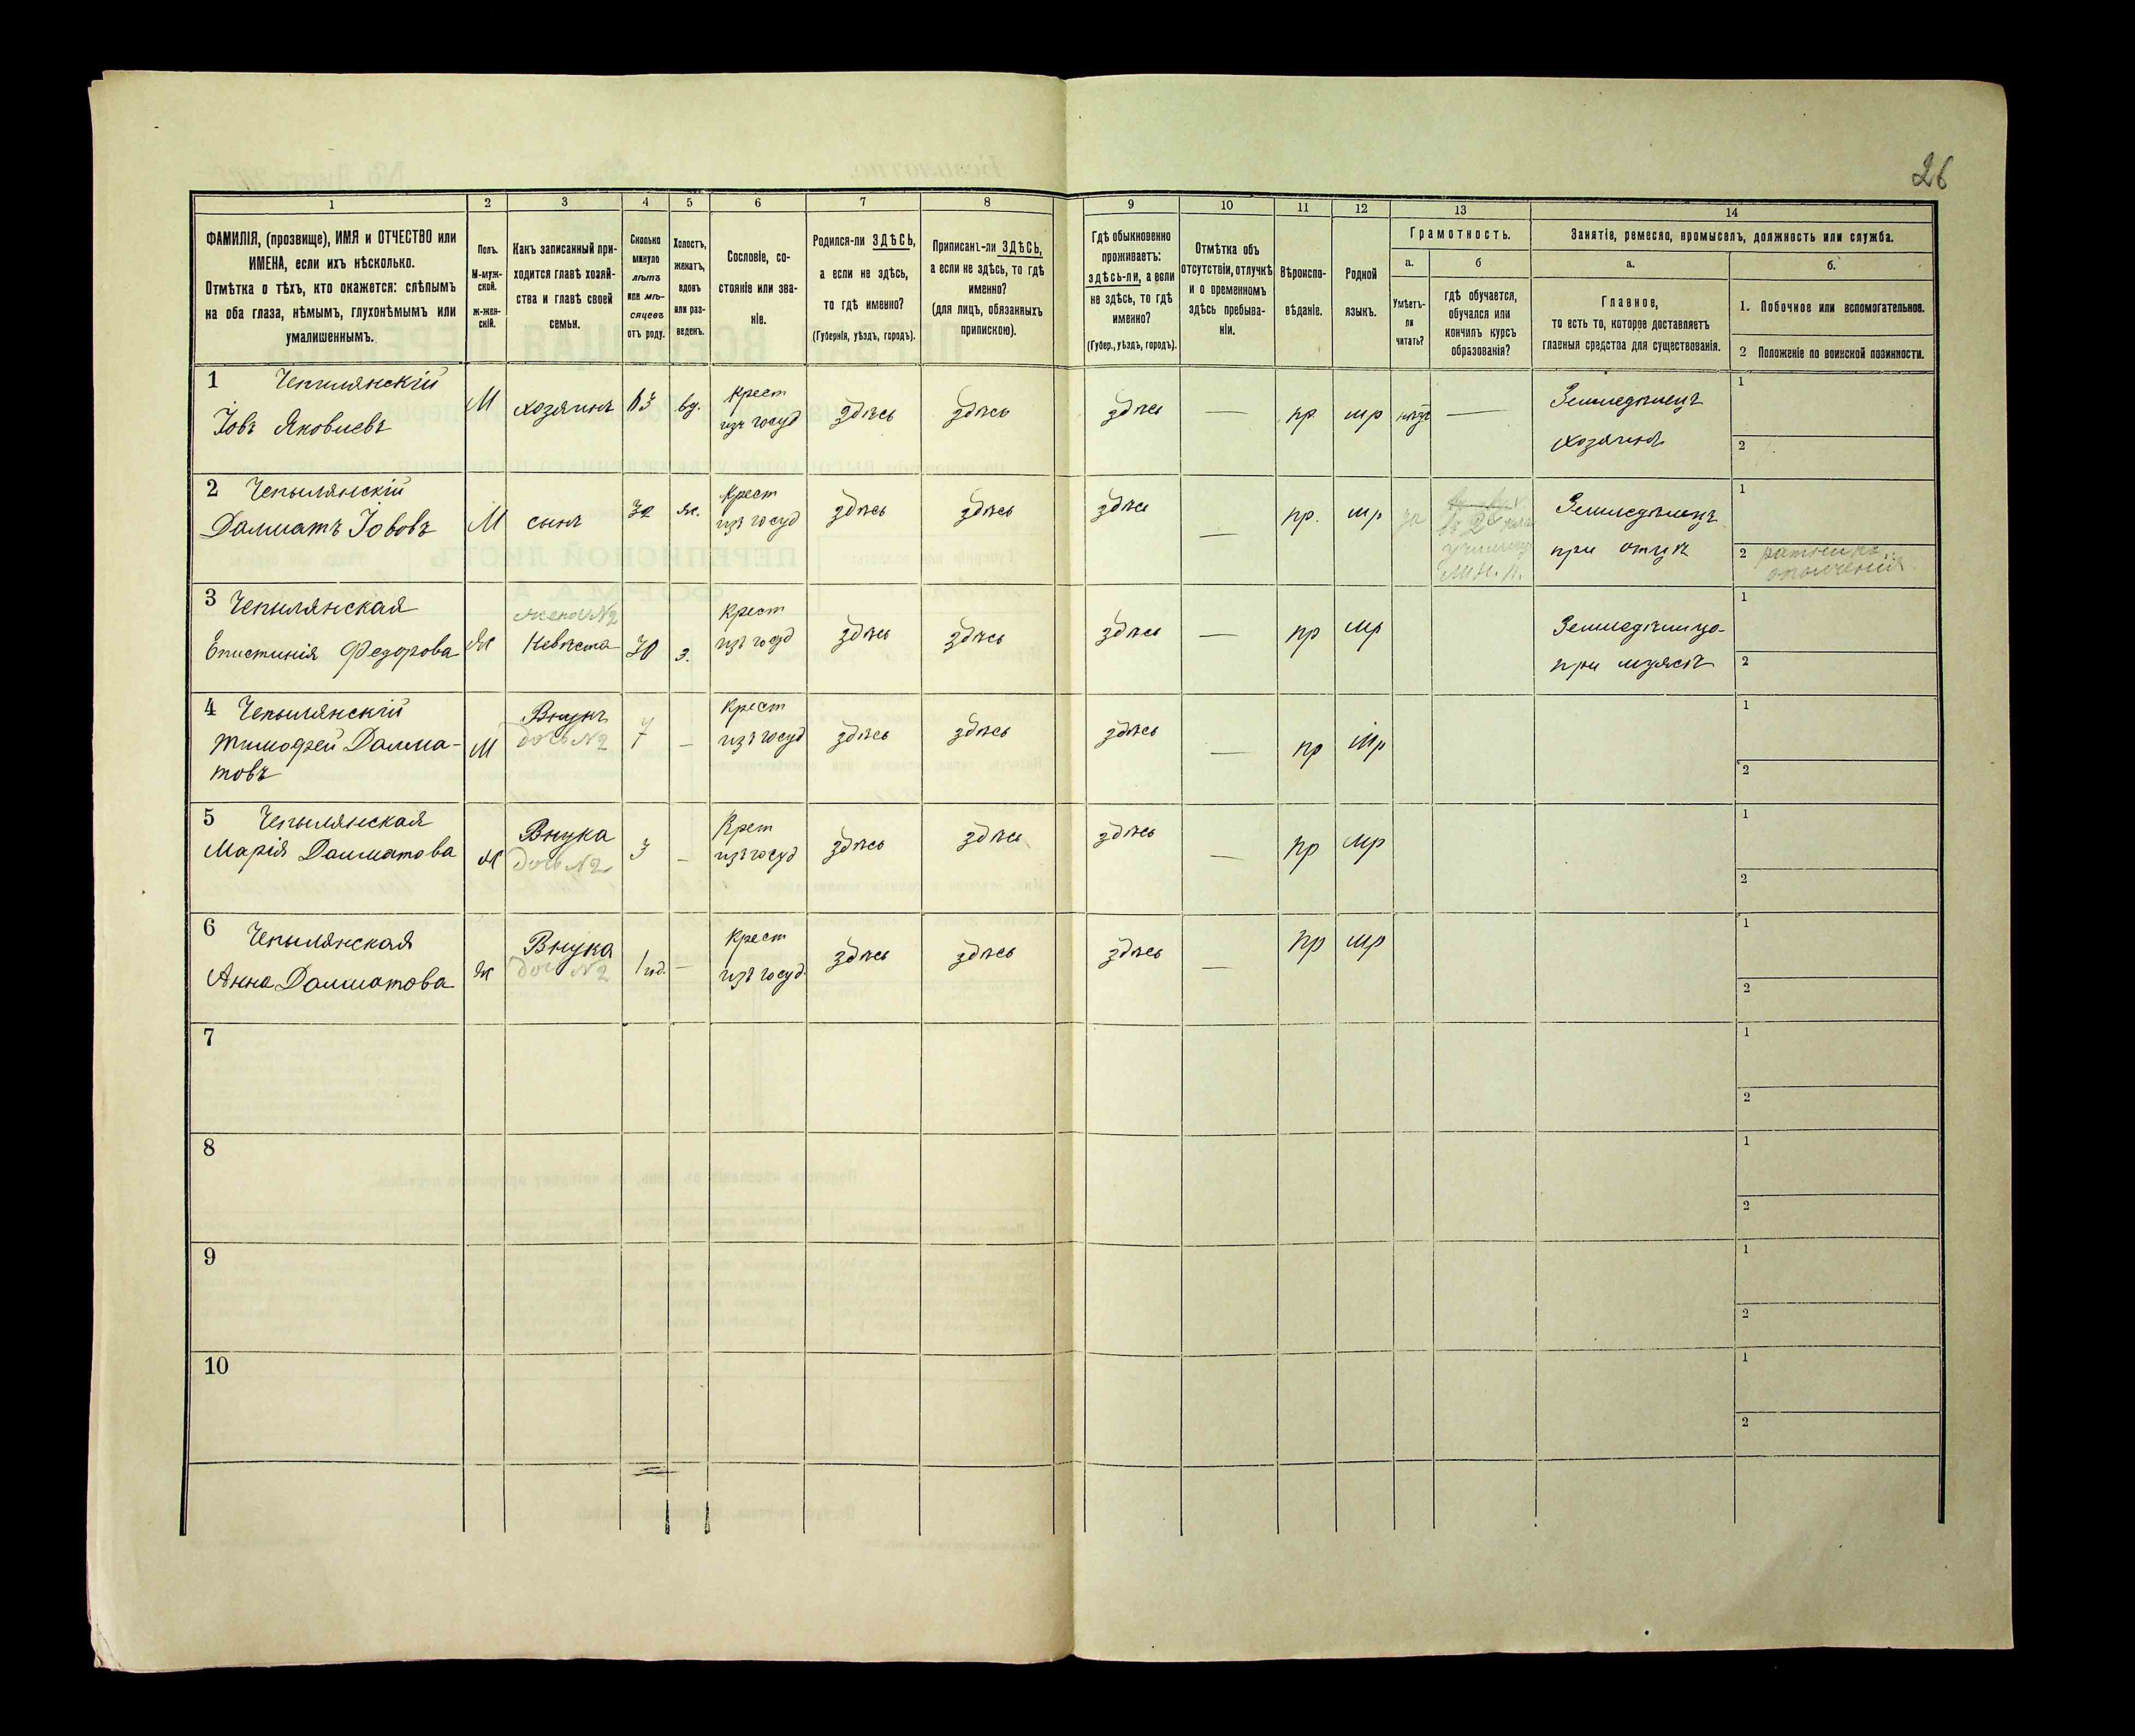 26
1
2
3
4
5
6
7
8
9
10
11
12
13
14
ФАМИЛІЯ, (прозвище), ИМЯ и ОТЧЕСТВО или
ИМЕНА, если ихъ нѣсколько.
Отмѣтка о тѣхъ, кто окажется: слѣпымъ
на оба глаза, нѣмымъ, глухонѣмымъ или
умалишеннымъ.
Полъ.
М-муж-
ской.
ж-жен-
скій.
Какъ записанный при-
ходится главѣ хозяй-
ства и главѣ своей
семьи.
Сколько
минуло
лѣтъ
или мѣ-
сяцевъ
отъ роду.
Холостъ,
женатъ,
вдовъ
или раз-
веденъ.
Сословіе, со-
стояніе или зва-
ніе.
Родился-ли ЗДѢСЬ,
а если не здѣсь,
то гдѣ именно?
(Губернія, уѣздъ, городъ).
Приписанъ-ли ЗДѢСЬ,
а если не здѣсь, то гдѣ
именно?
(для лицъ, обязанныхъ
припискою).
Гдѣ обыкновенно
проживаетъ:
здѣсь-ли, а если
не здѣсь, то гдѣ
именно?
(Губер., уѣздъ, городъ).
Отмѣтка объ
отсутствіи, отлучкѣ
и о временномъ
здѣсь пребыва-
ніи.
Вѣроиспо-
вѣданіе.
Родной
языкъ.
Грамотность.
а.
Умѣетъ-
ли
читать?
б
гдѣ обучается,
обучался или
кончилъ курсъ
образованія?
Занятіе, ремесло, промыселъ, должность или служба.
а.
Главное,
то есть то, которое доставляетъ
главныя средства для существованія.
б.
1. Побочное или вспомогательное.
2 Положеніе по воинской повинности.
1 Чепилянскій
Іовъ Яковлевъ
М
хозяинъ
63
вд.
Крест
изъ госуд
здѣсь
здѣсь
здѣсь
—
пр
мр
—
Земледѣлецъ
хозяинъ
1
2
2 Чепилянскій
Далматъ Іововъ
М
сынъ
32
ж.
Крест
изъ госуд
здѣсь
здѣсь
здѣсь
—
пр.
мр
М. Н. П.
Земледѣлецъ
при отцѣ
1
2 ратникъ
ополченія
3 Чепилянская
Епистинія Федорова
Ж
жена №2
Невѣста
30
з.
Крест
изъ госуд
здѣсь
здѣсь
здѣсь
—
пр
мр
при мужѣ
1
2
4 Чепилянскій
Тимофей Далма-
товъ
М
Внукъ
№2
7
—
Крест
изъ госуд
здѣсь
здѣсь
здѣсь
—
пр
мр
1
2
5 Чепилянская
Марія Далматова
Ж
Внука
дочь №2
3
—
Крет
изъ госуд
здѣсь
здѣсь
здѣсь
—
пр
мр
1
2
6 Чепилянская
Анна Далматова
Ж
Внука
дочь №2
1 год.
—
Крест
изъ госуд
здѣсь
здѣсь
здѣсь
—
пр
мр
1
2
7
1
2
8
1
2
9
1
2
10
1
2